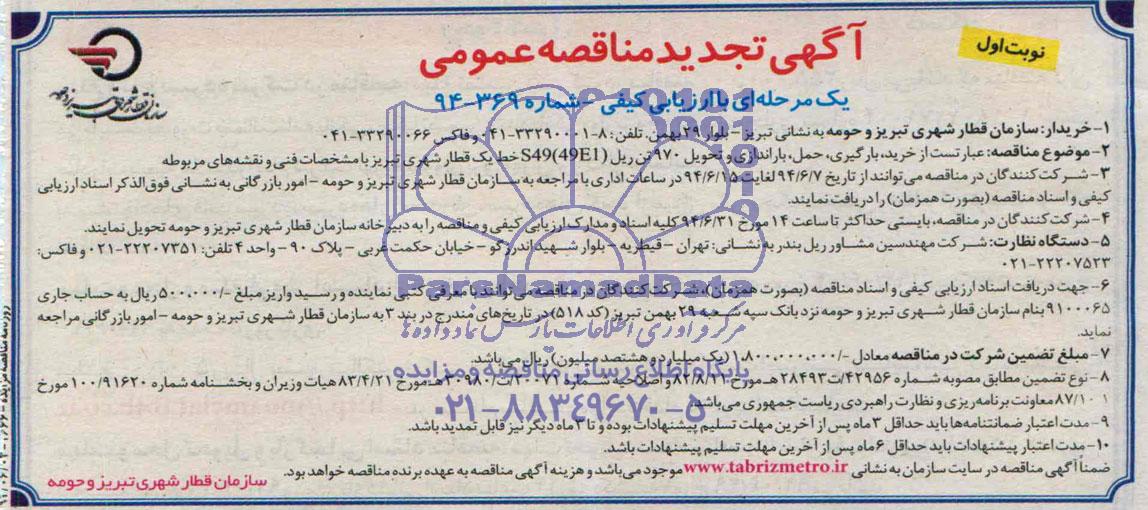 نوبت اول
آگهی تجدید مناقصه عمومی
یک مرحله‌ای با ارزیابی کیفی - شماره ۳۶۹-۹۴
۱- خریدار: سازمان قطار شهری تبریز و حومه به نشانی تبریز - بلوار ۲۹ بهمن. تلفن: ۸-۳۳۲۹۰۰۰۱-۰۴۱ و فاکس ۳۳۲۹۰۰۶۶-۰۴۱
۲- موضوع مناقصه: عبارتست از خرید، بارگیری، حمل، باراندازی و تحویل ۹۷۰ تن ریل S49(49E1) خط یک قطار شهری تبریز با مشخصات فنی و نقشه‌های مربوطه
۳- شرکت کنندگان در مناقصه می‌توانند از تاریخ ۹۴/۶/۷ لغایت ۹۴/۶/۱۵ در ساعات اداری با مراجعه به سازمان قطار شهری تبریز و حومه - امور بازرگانی به نشانی فوق‌الذکر اسناد ارزیابی
کیفی و اسناد مناقصه (بصورت همزمان) را دریافت نمایند.
۴- شرکت کنندگان در مناقصه، بایستی حداکثر تا ساعت ۱۴ مورخ ۹۴/۶/۳۱ کلیه اسناد و مدارک ارزیابی کیفی و مناقصه را به دبیرخانه سازمان قطار شهری تبریز و حومه تحویل نمایند.
۵- دستگاه نظارت: شرکت مهندسین مشاور ریل بندر به نشانی: تهران - قیطریه - بلوار شهید اندرزگو - خیابان حکمت غربی - پلاک ۹۰ - واحد ۴ تلفن: ۲۲۲۰۷۳۵۱-۰۲۱ و فاکس:
۲۲۲۰۷۵۲۳-۰۲۱
۶- جهت دریافت اسناد ارزیابی کیفی و اسناد مناقصه (بصورت همزمان)، شرکت کنندگان در مناقصه می‌توانند با معرفی کتبی نماینده و رسید واریز مبلغ -/۵۰۰,۰۰۰ ریال به حساب جاری
۹۱۰۰۰۶۵ بنام سازمان قطار شهری تبریز و حومه نزد بانک سپه شعبه ۲۹ بهمن تبریز (کد ۵۱۸) در تاریخ‌های مندرج در بند ۳ به سازمان قطار شهری تبریز و حومه - امور بازرگانی مراجعه
نماید.
۷- مبلغ تضمین شرکت در مناقصه معادل -/۱,۸۰۰,۰۰۰,۰۰۰ (یک میلیارد و هشتصد میلیون) ریال می‌باشد.
۸- نوع تضمین مطابق مصوبه شماره ۴۲۹۵۶/ت۲۸۴۹۳هـ مورخ ۸۲/۸/۱۱ و اصلاحیه شماره ۲۰۰۷۱/ت۳۰۹۸۰هـ مورخ ۸۳/۴/۲۱ هیات وزیران و بخشنامه شماره ۱۰۰/۹۱۶۲۰ مورخ
معاونت برنامه‌ریزی و نظارت راهبردی ریاست جمهوری می‌باشد.
۹- مدت اعتبار ضمانتنامه‌ها باید حداقل ۳ ماه پس از آخرین مهلت تسلیم پیشنهادات بوده و تا ۳ ماه دیگر نیز قابل تمدید باشد.
۱۰- مدت اعتبار پیشنهادات باید حداقل ۶ ماه پس از آخرین مهلت تسلیم پیشنهادات باشد.
ضمناً آگهی مناقصه در سایت سازمان به نشانی www.tabrizmetro.ir موجود می‌باشد و هزینه آگهی مناقصه به عهده برنده مناقصه خواهد بود.
سازمان قطار شهری تبریز و حومه
ParsNamadData
مرکز فرآوری اطلاعات پارس نماد داده‌ها
پایگاه اطلاع رسانی مناقصه و مزایده
۰۲۱-۸۸۳۴۹۶۷۰-۵